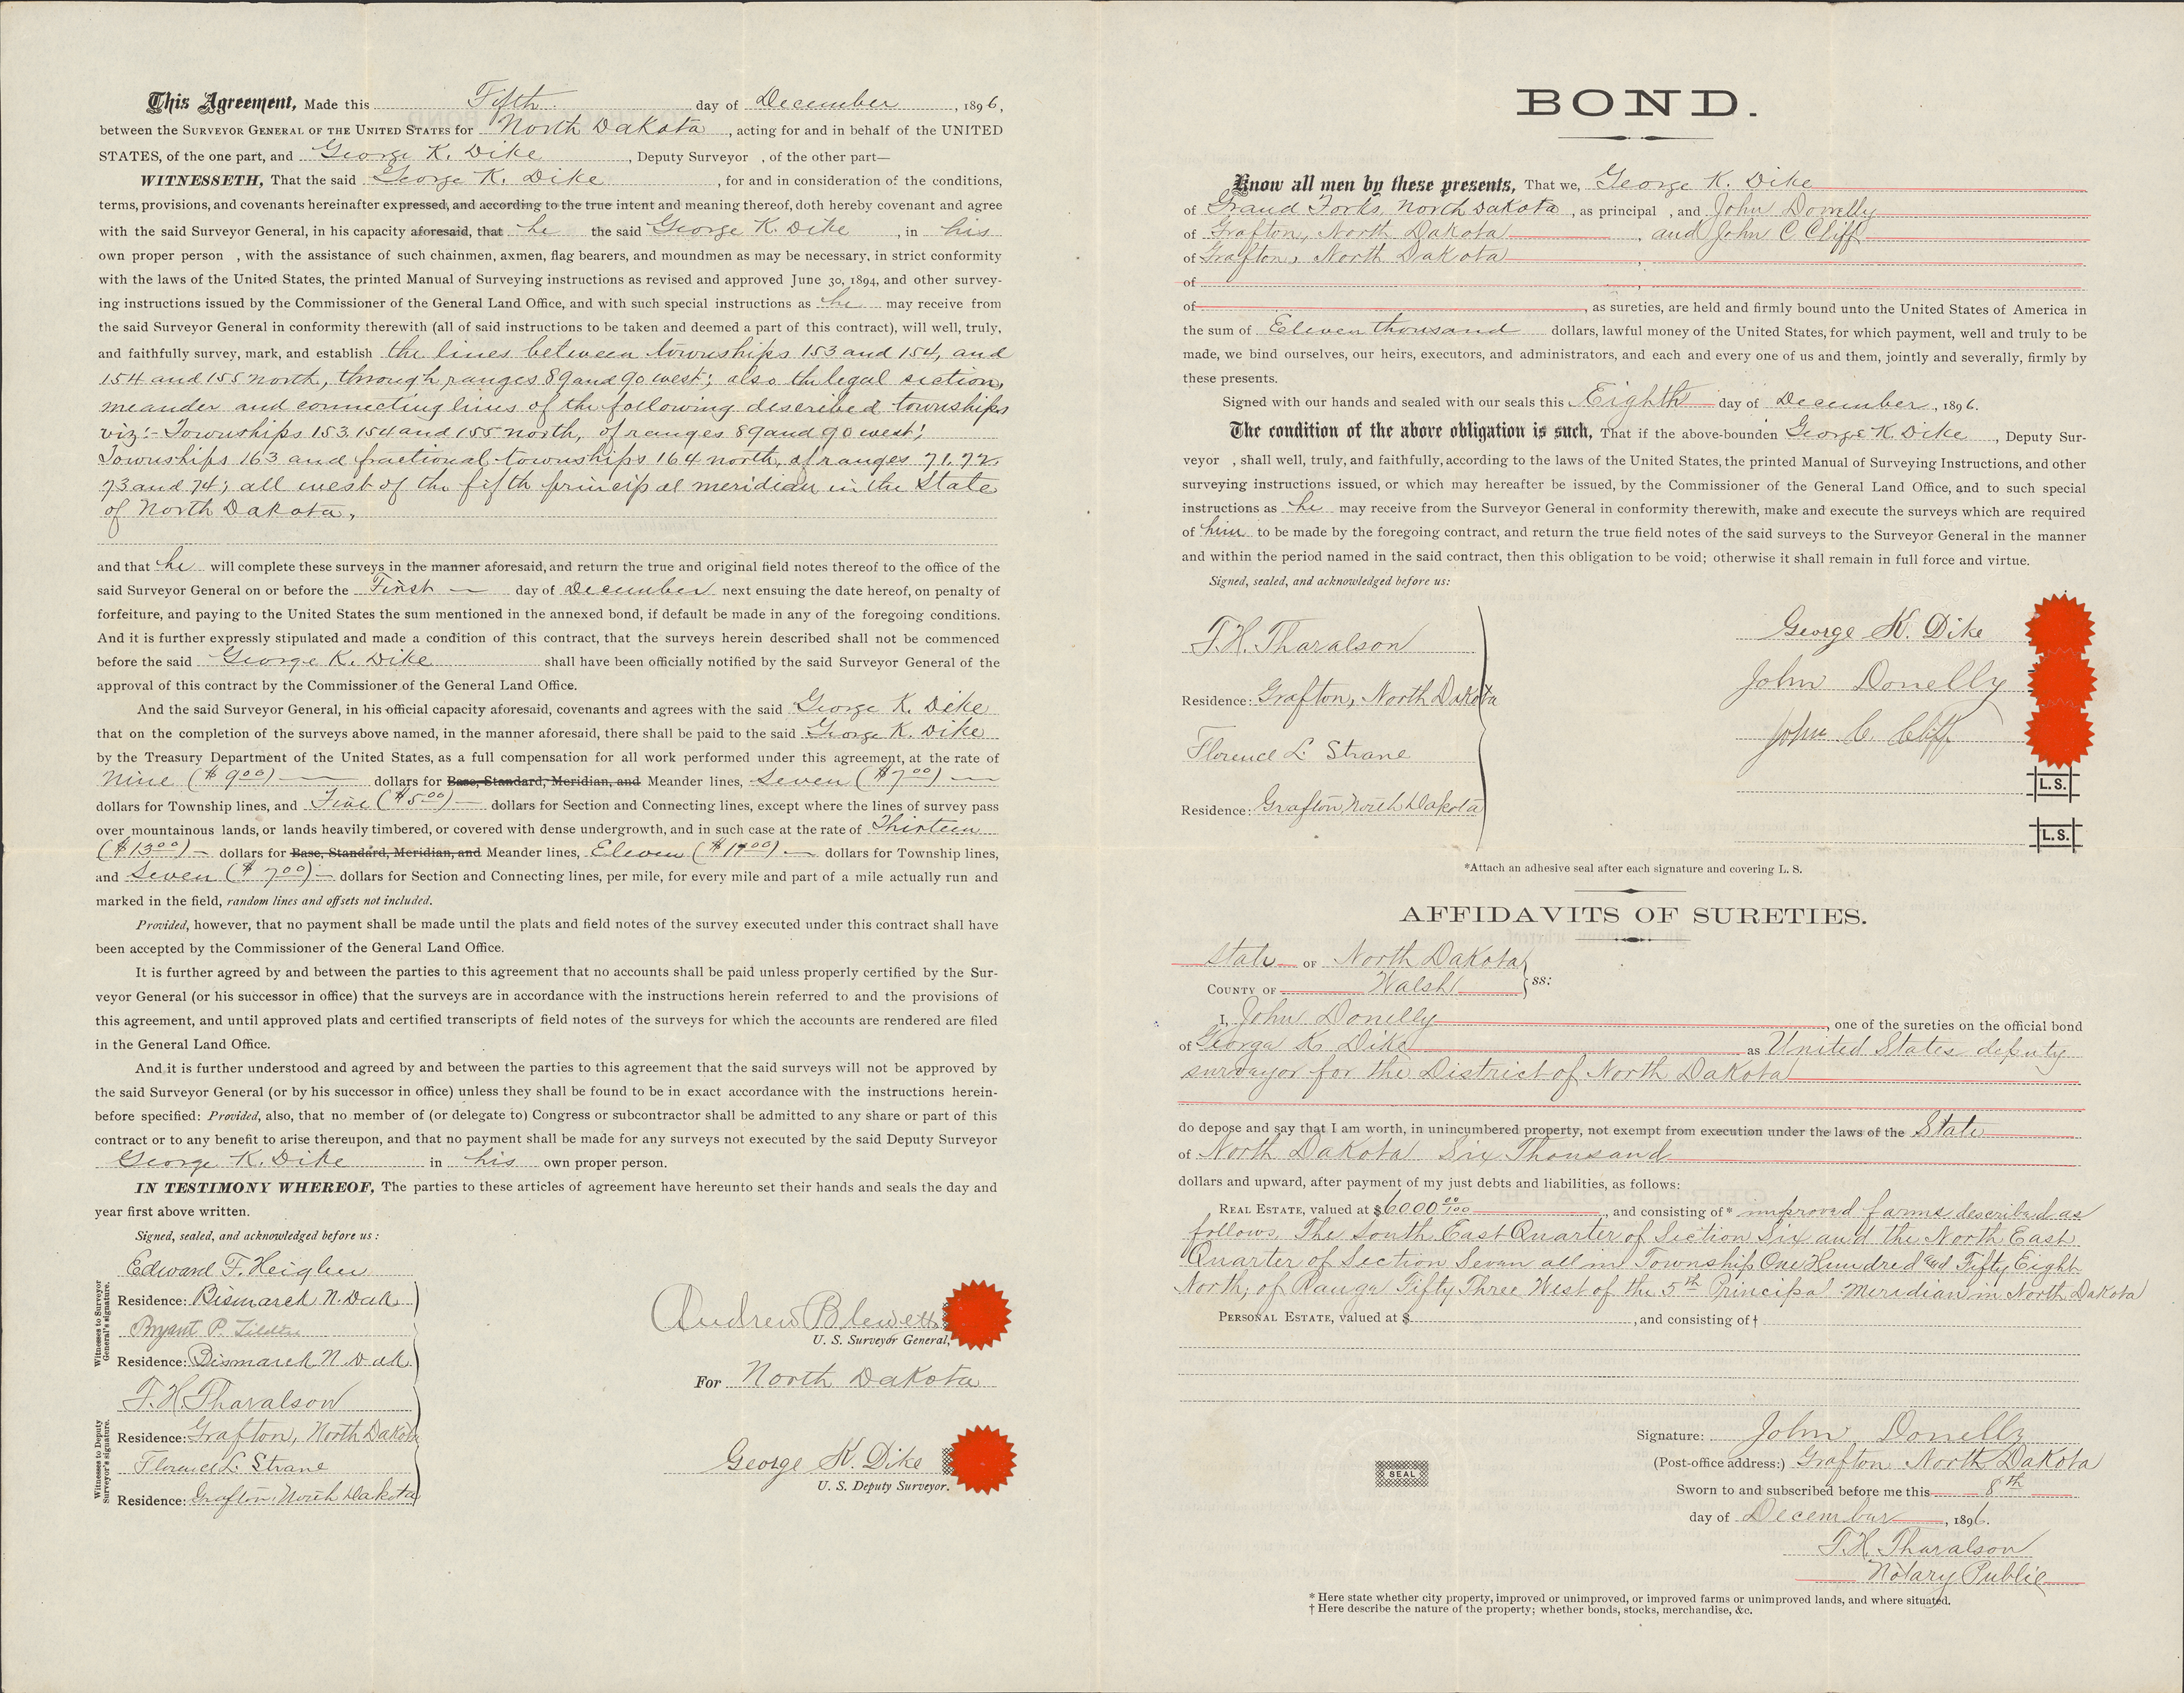 This Agreement, Made this Fifth day of December, 1896,
between the SURVEYOR GENERAL OF THE UNITED STATES for North Dakota, acting for and in behalf of the UNITED
STATES, of the one part, and George K. Dike, Deputy Surveyor , of the other part—
WITNESSETH, That the said George K. Dike, for and in consideration of the conditions,
terms, provisions, and covenants hereinafter expressed, and according to the true intent and meaning thereof, doth hereby covenant and agree
with the said Surveyor General, in his capacity aforesaid, that he the said George K. Dike, in his
own proper person , with the assistance of such chainmen, axmen, flag bearers, and moundmen as may be necessary, in strict conformity
with the laws of the United States, the printed Manual of Surveying instructions as revised and approved June 30, 1894, and other survey-
ing instructions issued by the Commissioner of the General Land Office, and with such special instructions as he may receive from
the said Surveyor General in conformity therewith (all of said instructions to be taken and deemed a part of this contract), will well, truly,
and faithfully survey, mark, and establish the lines between townships 153 and 154, and
154 and 155 north, through ranges 89 and 90 west; also the legal section,
meander and connecting lines of the following described townships
viz:- Townships 153. 154 and 155 north, of ranges 89 and 90 west;
Townships 163 and fractional townships 164 north, of ranges 71. 72.
73 and 74; all west of the fifth principal meridian in the State
of North Dakota,
and that he will complete these surveys in the manner aforesaid, and return the true and original field notes thereof to the office of the
said Surveyor General on or before the First — day of December next ensuing the date hereof, on penalty of
forfeiture, and paying to the United States the sum mentioned in the annexed bond, if default be made in any of the foregoing conditions.
And it is further expressly stipulated and made a condition of this contract, that the surveys herein described shall not be commenced
before the said George K. Dike shall have been officially notified by the said Surveyor General of the
approval of this contract by the Commissioner of the General Land Office.
And the said Surveyor General, in his official capacity aforesaid, covenants and agrees with the said George K. Dike
that on the completion of the surveys above named, in the manner aforesaid, there shall be paid to the said George K. Dike
by the Treasury Department of the United States, as a full compensation for all work performed under this agreement, at the rate of
Nine ($9.00) — dollars for Base, Standard, Meridian, and Meander lines, Seven ($7.00) —
dollars for Township lines, and Five ($5.00) — dollars for Section and Connecting lines, except where the lines of survey pass
over mountainous lands, or lands heavily timbered, or covered with dense undergrowth, and in such case at the rate of Thirteen
($13.00) — dollars for Base, Standard, Meridian, and Meander lines, Eleven ($11.00) — dollars for Township lines,
and Seven ($7.00) — dollars for Section and Connecting lines, per mile, for every mile and part of a mile actually run and
marked in the field, random lines and offsets not included.
Provided, however, that no payment shall be made until the plats and field notes of the survey executed under this contract shall have
been accepted by the Commissioner of the General Land Office.
It is further agreed by and between the parties to this agreement that no accounts shall be paid unless properly certified by the Sur-
veyor General (or his successor in office) that the surveys are in accordance with the instructions herein referred to and the provisions of
this agreement, and until approved plats and certified transcripts of field notes of the surveys for which the accounts are rendered are filed
in the General Land Office.
And it is further understood and agreed by and between the parties to this agreement that the said surveys will not be approved by
the said Surveyor General (or by his successor in office) unless they shall be found to be in exact accordance with the instructions herein-
before specified: Provided, also, that no member of (or delegate to) Congress or subcontractor shall be admitted to any share or part of this
contract or to any benefit to arise thereupon, and that no payment shall be made for any surveys not executed by the said Deputy Surveyor
George K. Dike in his own proper person.
IN TESTIMONY WHEREOF, The parties to these articles of agreement have hereunto set their hands and seals the day and
year first above written.
Signed, sealed, and acknowledged before us:
Witnesses to Surveyor General's signature.
Edward F. Heigher
Residence: Bismarck N. Dak
Bryant P. Tilden
Residence: Bismarck N Dak
Witnesses to Deputy Surveyor's signature.
T. H. Tharalson
Residence: Grafton, North Dakota
Florence L. Strane
Residence: Grafton, North Dakota
Andrew Blewett
U. S. Surveyor General,
For North Dakota
George K. Dike
U. S. Deputy Surveyor.
BOND.
Know all men by these presents, That we, George K. Dike
of Grand Forks, North Dakota, as principal , and John Donelly
of Grafton, North Dakota, and John C Cliff
of Grafton, North Dakota,
of
of , as sureties, are held and firmly bound unto the United States of America in
the sum of Eleven thousand dollars, lawful money of the United States, for which payment, well and truly to be
made, we bind ourselves, our heirs, executors, and administrators, and each and every one of us and them, jointly and severally, firmly by
these presents.
Signed with our hands and sealed with our seals this Eighth day of December, 1896.
The condition of the above obligation is such, That if the above-bounden George K. Dike, Deputy Sur-
veyor , shall well, truly, and faithfully, according to the laws of the United States, the printed Manual of Surveying Instructions, and other
surveying instructions issued, or which may hereafter be issued, by the Commissioner of the General Land Office, and to such special
instructions as he may receive from the Surveyor General in conformity therewith, make and execute the surveys which are required
of him to be made by the foregoing contract, and return the true field notes of the said surveys to the Surveyor General in the manner
and within the period named in the said contract, then this obligation to be void; otherwise it shall remain in full force and virtue.
Signed, sealed, and acknowledged before us:
T. H. Tharalson
Residence: Grafton, North Dakota
Florence L. Strane
Residence: Grafton, North Dakota
George K. Dike
John Donelly
John C. Cliff
L.S.
L.S.
*Attach an adhesive seal after each signature and covering L. S.
AFFIDAVITS OF SURETIES.
State OF North Dakota
COUNTY OF Walsh
ss:
I, John Donelly, one of the sureties on the official bond
of George K. Dike as United States deputy
surveyor for the District of North Dakota
do depose and say that I am worth, in unincumbered property, not exempt from execution under the laws of the State
of North Dakota Six Thousand
dollars and upward, after payment of my just debts and liabilities, as follows:
REAL ESTATE, valued at $6000 00/100, and consisting of* improved farms described as
follows, The South East Quarter of Section Six and the North East
Quarter of Section Seven all in Township One Hundred and Fifty Eight
North, of Range Fifty Three West of the 5th Principal Meridian in North Dakota
PERSONAL ESTATE, valued at $ , and consisting of†
Signature: John Donelly
(Post-office address:) Grafton North Dakota
SEAL
Sworn to and subscribed before me this 8th
day of December, 1896.
T. H. Tharalson
Notary Public
* Here state whether city property, improved or unimproved, or improved farms or unimproved lands, and where situated.
† Here describe the nature of the property; whether bonds, stocks, merchandise, &c.